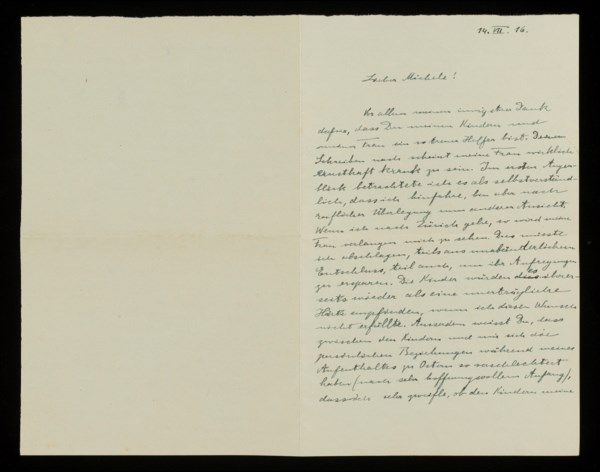 14. VII. 16.
Lieber Michele!
Vor allem meinen innigsten Dank
dafür, dass Du meinen Kindern und
meiner Frau ein so treuer Helfer bist. Deinem
Schreiben nach scheint meine Frau wirklich
ernsthaft krank zu sein. Im ersten Augen-
blick betrachtete ich es als selbstverständ-
lich, dass ich hinfahre, bin aber nach
reiflicher Überlegung nun anderer Ansicht.
Wenn ich nach Zürich gehe, so wird meine
Frau verlangen mich zu sehen. Dies müsste
ich abschlagen, teils aus unabänderlichem
Entschluss, teils auch, um ihr Aufregungen
zu ersparen. Die Kinder würden dies ihrer-
seits wieder als eine unerträgliche
Härte empfinden, wenn ich diesen Wunsch
nicht erfüllte. Ausserdem weisst Du, dass
zwischen den Kindern und mir sich die
persönlichen Beziehungen während meines
Aufenthaltes zu Ostern so verschlechtert
haben (nach sehr hoffnungsvollem Anfang),
dass ich sehr zweifle, ob den Kindern meine